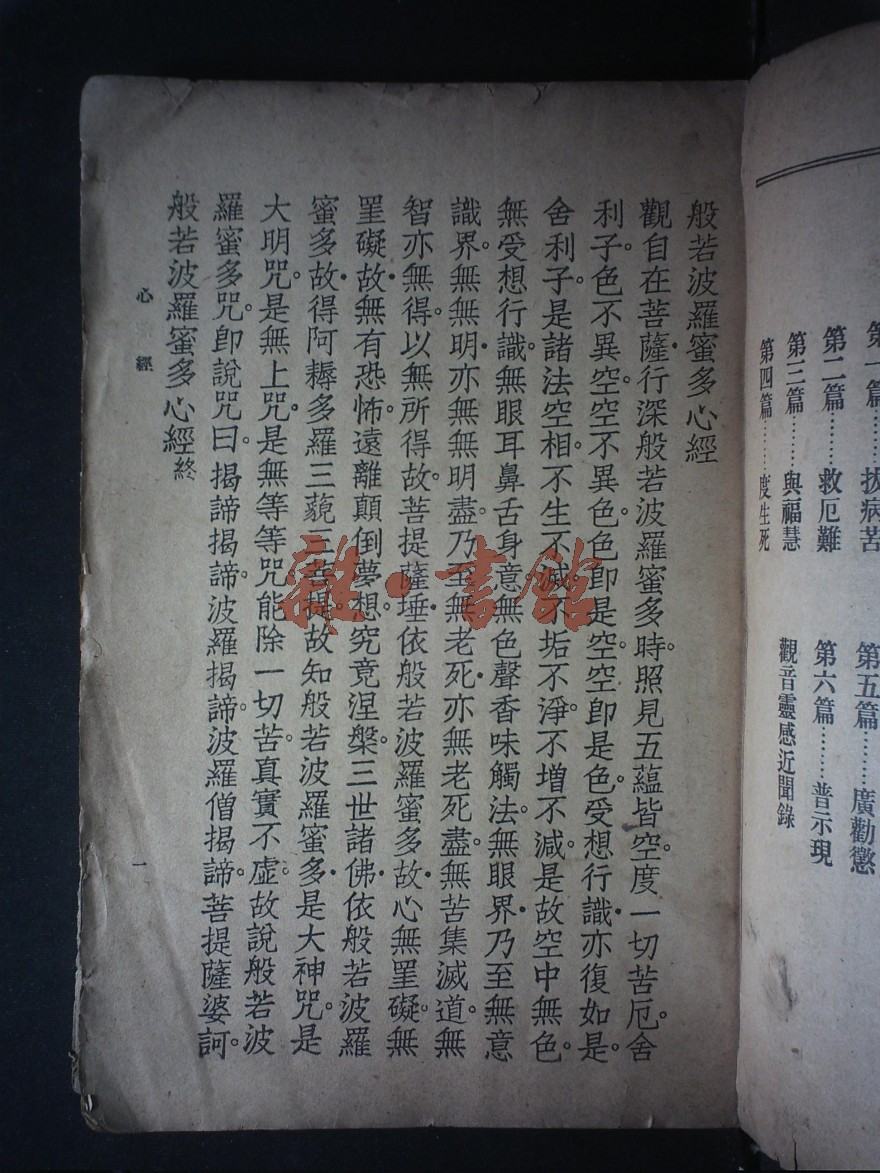 第一篇………拔病苦
第二篇………救厄難
第三篇………與福慧
第四篇………度生死
第五篇………廣勸懲
第六篇………普示現
觀音靈感近聞錄
般若波羅蜜多心經
觀自在菩薩・行深般若波羅蜜多時。照見五蘊皆空。度一切苦厄。舍
利子。色不異空。空不異色。色卽是空。空卽是色。受想行識・亦復如是。
舍利子。是諸法空相。不生不滅。不垢不淨。不增不減。是故空中無色。
無受想行識。無眼耳鼻舌身意。無色聲香味觸法。無眼界・乃至無意
識界。無無明・亦無無明盡。乃至無老死・亦無老死盡。無苦集滅道。無
智亦無得。以無所得故。菩提薩埵・依般若波羅蜜多故・心無罣礙。無
罣礙故・無有恐怖。遠離顛倒夢想。究竟涅槃。三世諸佛・依般若波羅
蜜多故・得阿耨多羅三藐三菩提。故知般若波羅蜜多・是大神咒。是
大明咒。是無上咒。是無等等咒。能除一切苦。真實不虛。故說般若波
羅蜜多咒。卽說咒曰。揭諦揭諦。波羅揭諦。波羅僧揭諦。菩提薩婆訶。
般若波羅蜜多心經終
心經 一
雜・書館